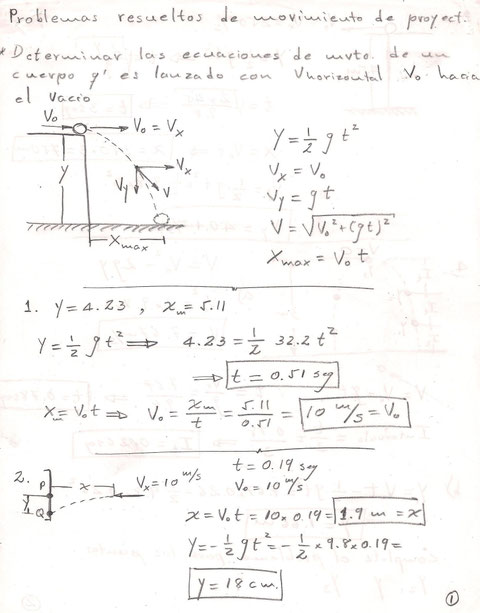 Problemas resueltos de movimiento de proyect.
* Determinar las ecuaciones de mvto. de un
cuerpo q' es lanzado con Vhorizontal Vo hacia
el vacio
Vo
Vo = Vx
Y
Vx
Vy
V
Xmax
Y = 1/2 g t²
Vx = Vo
Vy = g t
V = √(Vo² + (gt)²)
Xmax = Vo t
1. Y = 4.23 , Xm = 5.11
Y = 1/2 g t² ⟹ 4.23 = 1/2 32.2 t²
⟹ t = 0.51 seg
Xm = Vo t ⟹ Vo = Xm/t = 5.11/0.51 = 10 m/s = Vo
2.
P
x
Vx = 10 m/s
Y
Q
t = 0.19 seg
Vo = 10 m/s
x = Vo t = 10 × 0.19 = 1.9 m = x
Y = - 1/2 g t² = - 1/2 × 9.8 × 0.19 =
Y = 18 cm.
1